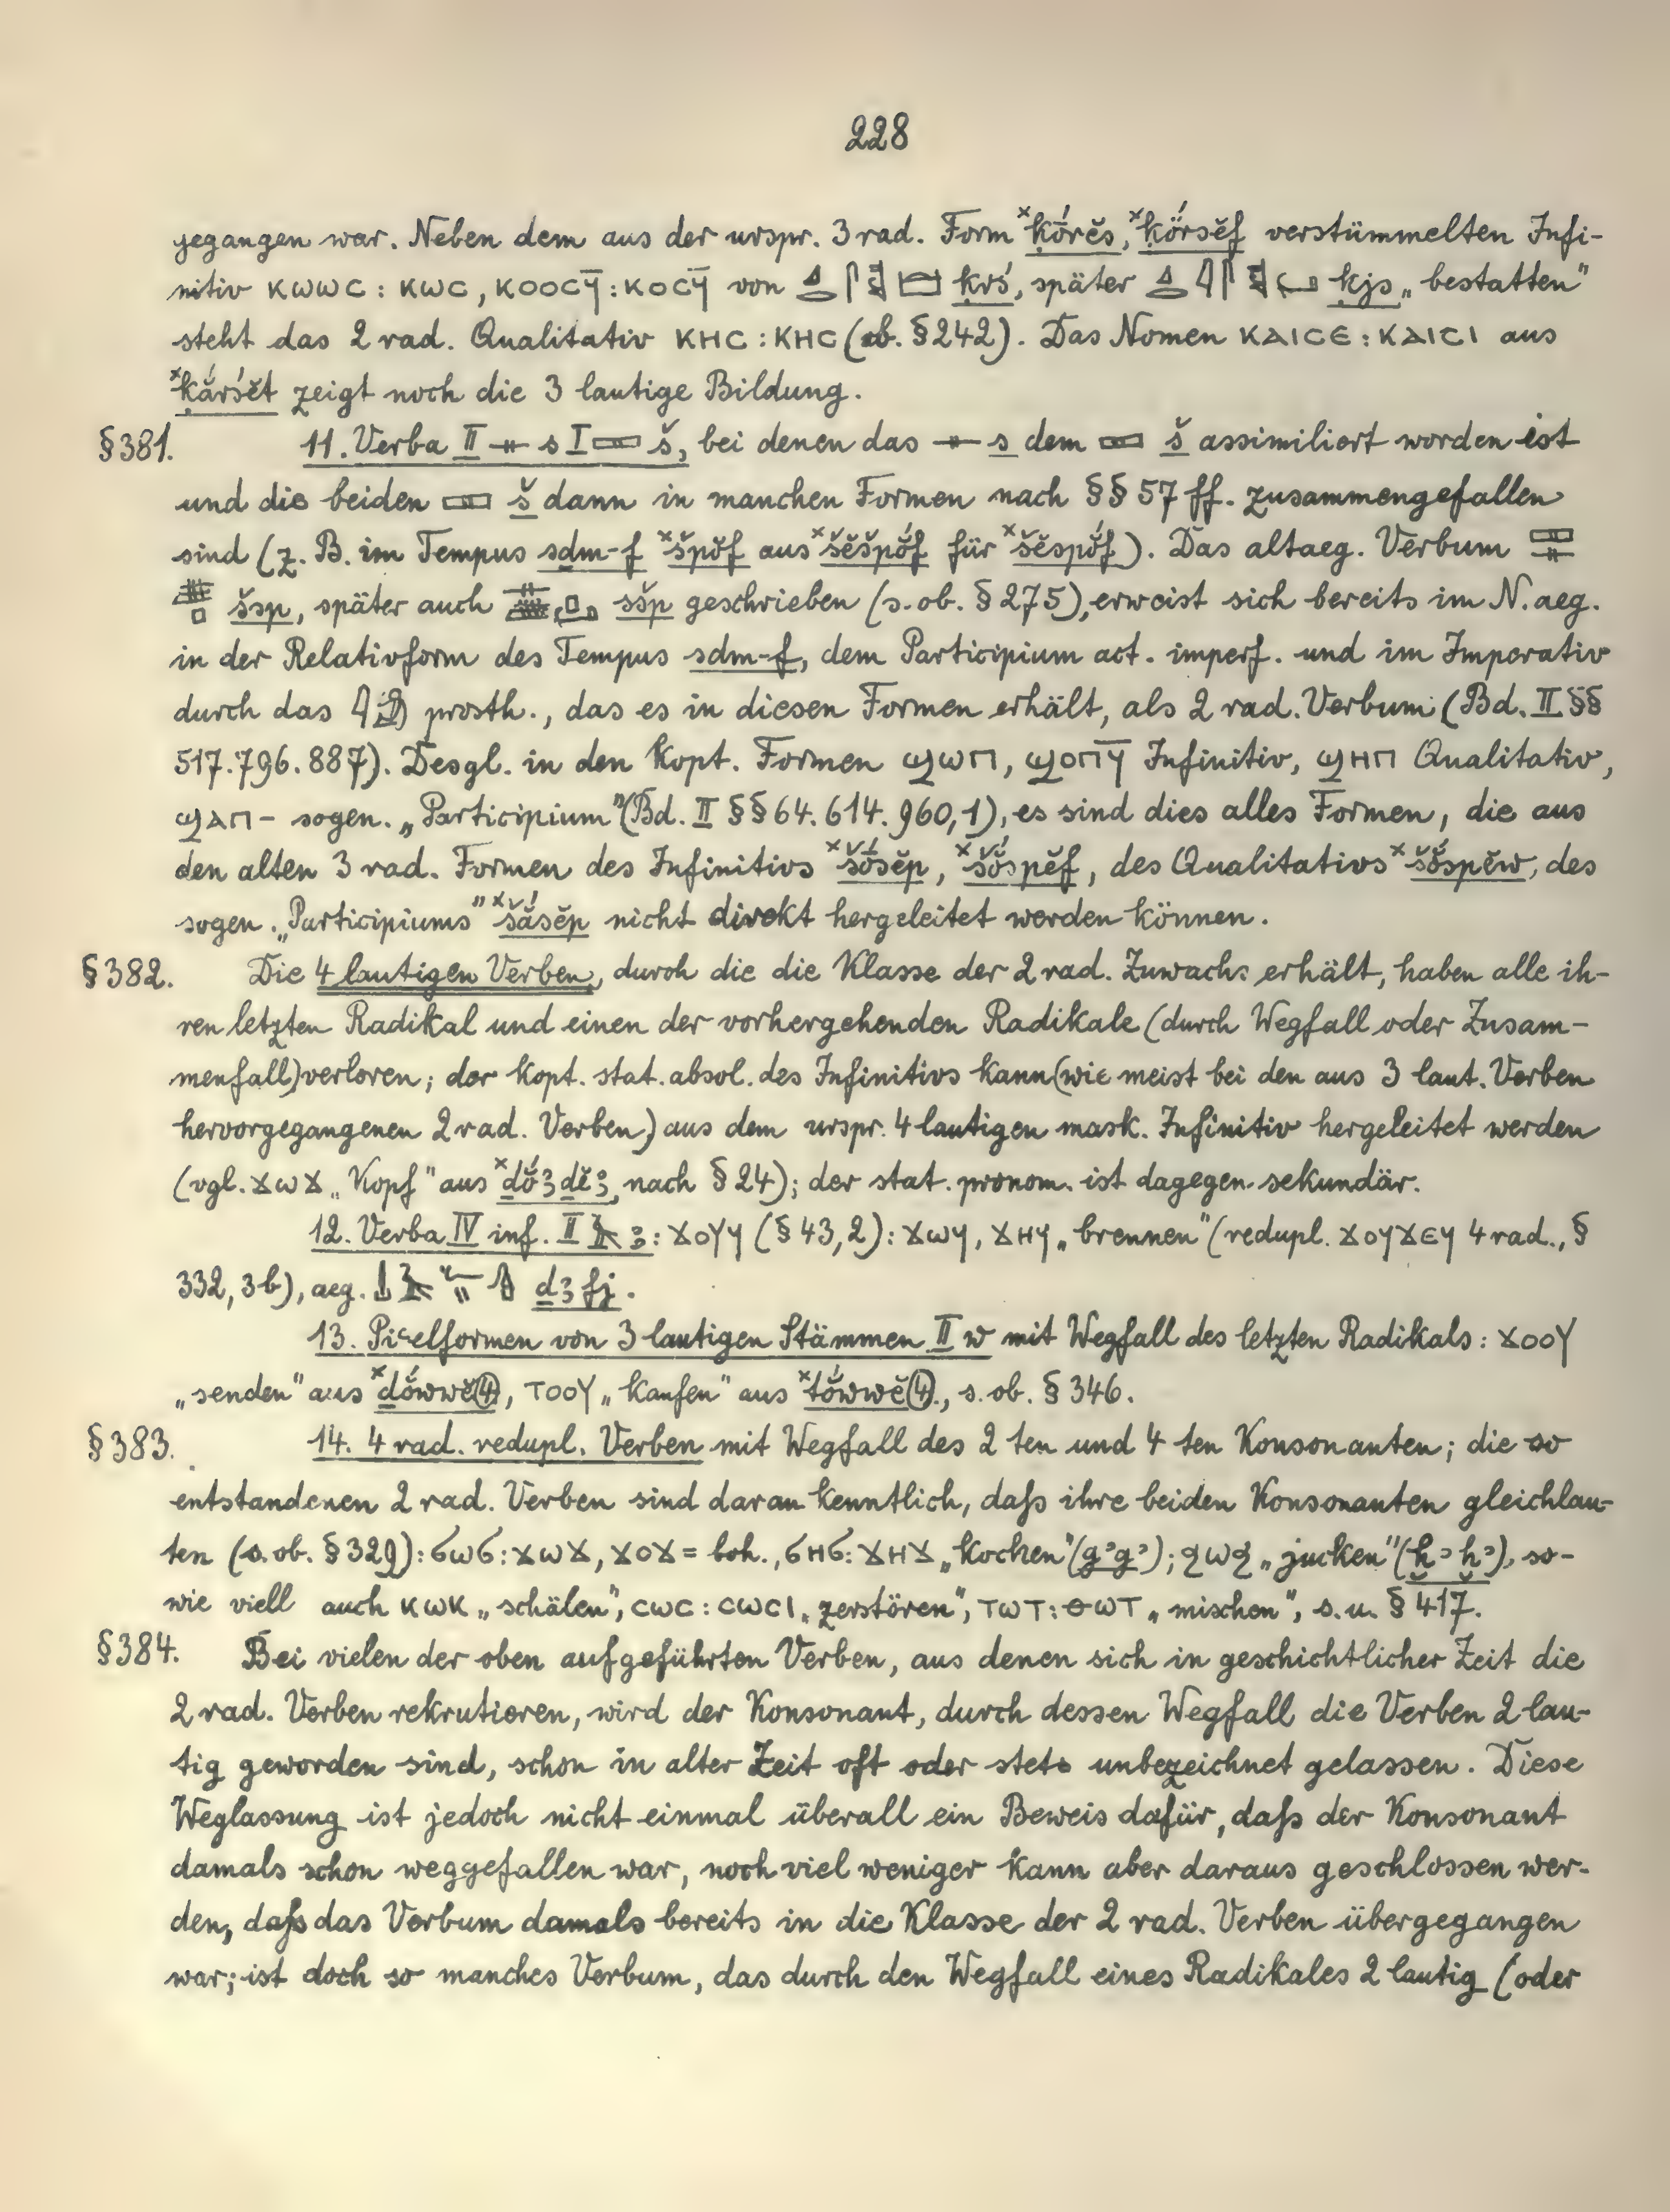 228
gegangen war. Neben dem aus der urspr. 3 rad. Form ˣḳórĕs, ˣḳŏ́rsĕf verstümmelten Infi-
nitiv ⲕⲱⲱⲥ : ⲕⲱⲥ, ⲕⲟⲟⲥϥ̄ : ⲕⲟⲥϥ̄ von ḳrś, später ḳjs „bestatten"
steht das 2 rad. Qualitativ ⲕⲏⲥ : ⲕⲏⲥ (ob. § 242). Das Nomen ⲕⲁⲓⲥⲉ : ⲕⲁⲓⲥⲓ aus
ˣḳắrśĕt zeigt noch die 3 lautige Bildung.
§ 381. 11. Verba II s I š, bei denen das s dem š assimiliert worden ist
und die beiden š dann in manchen Formen nach §§ 57 ff. zusammengefallen
sind (z. B. im Tempus sḏm-f ˣšpŏ́f aus ˣšĕšpŏ́f für ˣšĕspŏ́f). Das altaeg. Verbum
šsp, später auch sšp geschrieben (s. ob. § 275), erweist sich bereits im N. aeg.
in der Relativform des Tempus sḏm-f, dem Participium act. imperf. und im Imperativ
durch das prosth., das es in diesen Formen erhält, als 2 rad. Verbum (Bd. II §§
517. 796. 887). Desgl. in den kopt. Formen ϣⲱⲡ, ϣⲟⲡϥ̄ Infinitiv, ϣⲏⲡ Qualitativ,
ϣⲁⲡ- sogen. „Participium" (Bd. II §§ 64. 614. 960,1), es sind dies alles Formen, die aus
den alten 3 rad. Formen des Infinitivs ˣšósĕp, ˣšŏ́spĕf, des Qualitativs ˣšŏ́spĕw, des
sogen. „Participiums" ˣšásĕp nicht direkt hergeleitet werden können.
§ 382. Die 4 lautigen Verben, durch die die Klasse der 2 rad. Zuwachs erhält, haben alle ih-
ren letzten Radikal und einen der vorhergehenden Radikale (durch Wegfall oder Zusam-
menfall) verloren; der kopt. stat. absol. des Infinitivs kann (wie meist bei den aus 3 laut. Verben
hervorgegangenen 2 rad. Verben) aus dem urspr. 4 lautigen mask. Infinitiv hergeleitet werden
(vgl. ϫⲱϫ „Kopf" aus ˣḏŏ́ꜣḏĕꜣ, nach § 24); der stat. pronom. ist dagegen sekundär.
12. Verba IV inf. II ꜣ: ϫⲟϥϥ (§ 43,2) : ϫⲱϥ, ϫⲏϥ „brennen" (redupl. ϫⲟϥϫⲉϥ 4 rad., §
332, 3b), aeg. ḏꜣfj.
13. Piʿelformen von 3 lautigen Stämmen II w mit Wegfall des letzten Radikals: ϫⲟⲟⲩ
„senden" aus ˣḏŏ́wwĕ(ꞽ), ⲧⲟⲟⲩ „kaufen" aus ˣtŏ́wwĕ(ꞽ), s. ob. § 346.
§ 383. 14. 4 rad. redupl. Verben mit Wegfall des 2 ten und 4 ten Konsonanten; die so
entstandenen 2 rad. Verben sind daran kenntlich, daß ihre beiden Konsonanten gleichlau-
ten (s. ob. § 329): ϭⲱϭ : ϫⲱϫ, ϫⲟϫ= boh., ϭⲏϭ : ϫⲏϫ „kochen" (gʾgʾ); ϩⲱϩ „jucken" (ḫʾḫʾ), so-
wie viell auch ⲕⲱⲕ „schälen", ⲥⲱⲥ : ⲥⲱⲥⲓ „zerstören", ⲧⲱⲧ : ⲑⲱⲧ „mischen", s. u. § 417.
§ 384. Bei vielen der oben aufgeführten Verben, aus denen sich in geschichtlicher Zeit die
2 rad. Verben rekrutieren, wird der Konsonant, durch dessen Wegfall die Verben 2 lau-
tig geworden sind, schon in alter Zeit oft oder stets unbezeichnet gelassen. Diese
Weglassung ist jedoch nicht einmal überall ein Beweis dafür, daß der Konsonant
damals schon weggefallen war, noch viel weniger kann aber daraus geschlossen wer-
den, daß das Verbum damals bereits in die Klasse der 2 rad. Verben übergegangen
war; ist doch so manches Verbum, das durch den Wegfall eines Radikales 2 lautig (oder